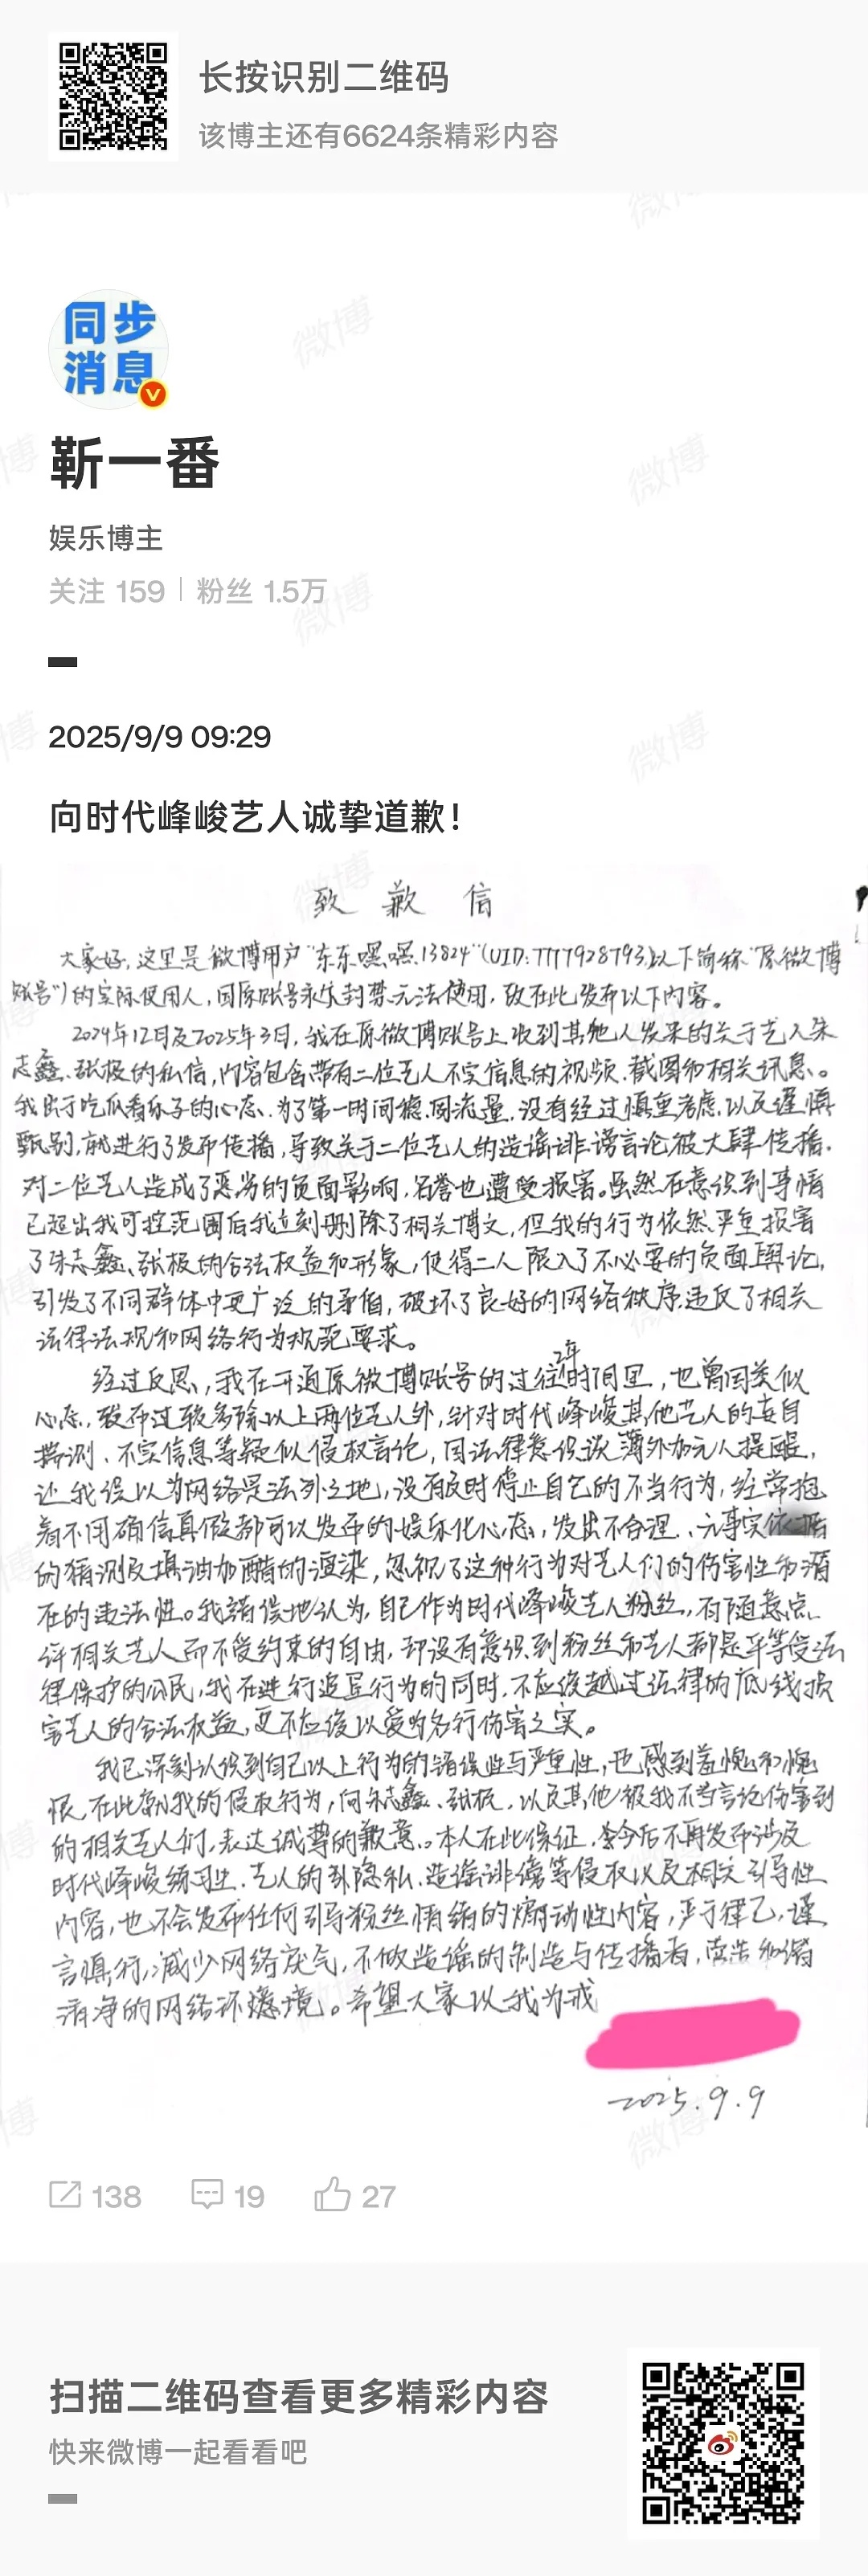 长按识别二维码
该博主还有6624条精彩内容
同步
消息
靳一番
娱乐博主
关注 159 | 粉丝 1.5万
2025/9/9 09:29
向时代峰峻艺人诚挚道歉！
致歉信
大家好，这里是微博用户“东东嘿嘿13824”（UID:7777928793，以下简称“原微博
账号”）的实际使用人，因原账号永久封禁无法使用，故在此发布以下内容。
2024年12月及2025年3月，我在原微博账号上收到其他人发来的关于艺人朱
志鑫、张极的私信，内容包含带有二位艺人不实信息的视频、截图和相关讯息。
我出于吃瓜看乐子的心态、为了第一时间稳固流量，没有经过慎重考虑以及谨慎
甄别，就进行了发布传播，导致关于二位艺人的造谣诽谤言论被大肆传播，
对二位艺人造成了恶劣的负面影响，名誉也遭受损害。虽然在意识到事情
已超出我可控范围后我立刻删除了相关博文，但我的行为依然严重损害
了朱志鑫、张极的合法权益和形象，使得二人限入了不必要的负面舆论，
引发了不同群体中更广泛的矛盾，破坏了良好的网络秩序，违反了相关
法律法规和网络行为规范要求。
经过反思，我在开通原微博账号的过往2年时间里，也曾因类似
心态，发布过较多除以上两位艺人外，针对时代峰峻其他艺人的妄自
揣测、不实信息等疑似侵权言论，因法律意识淡薄外加无人提醒，
让我误以为网络是法外之地，没有及时停止自己的不当行为，经常抱
着不用确信真假都可以发布的娱乐化心态，发出不合理、无事实依据
的猜测及填油加醋的渲染，忽视了这种行为对艺人们的伤害性和潜
在的违法性。我错误地认为，自己作为时代峰峻艺人粉丝，有随意点
评相关艺人而不受约束的自由，却没有意识到粉丝和艺人都是平等受法
律保护的公民，我在进行追星行为的同时，不应该越过法律的底线损
害艺人的合法权益，更不应该以爱为名行伤害之实。
我已深刻认识到自己以上行为的错误性与严重性，也感到羞愧和愧
恨，在此就我的侵权行为，向朱志鑫、张极，以及其他被我不当言论伤害到
的相关艺人们，表达诚挚的歉意。本人在此保证，今后不再发布涉及
时代峰峻练习生、艺人的隐私、造谣诽谤等侵权以及相关引导性
内容，也不会发布任何引导粉丝情绪的煽动性内容，严于律己，谨
言慎行，减少网络戾气，不做造谣的制造与传播者，营造和谐
清净的网络环境。希望大家以我为戒
2025.9.9
138 19 27
扫描二维码查看更多精彩内容
快来微博一起看看吧